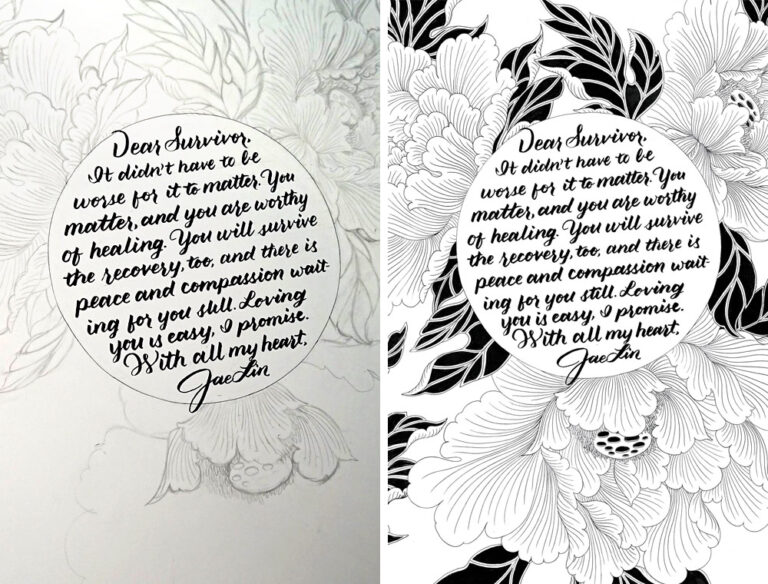 Dear Survivor,
It didn't have to be
worse for it to matter. You
matter, and you are worthy
of healing. You will survive
the recovery, too, and there is
peace and compassion wait-
ing for you still. Loving
you is easy, I promise.
With all my heart,
JaeLin
Dear Survivor,
It didn't have to be
worse for it to matter. You
matter, and you are worthy
of healing. You will survive
the recovery, too, and there is
peace and compassion wait-
ing for you still. Loving
you is easy, I promise.
With all my heart,
JaeLin